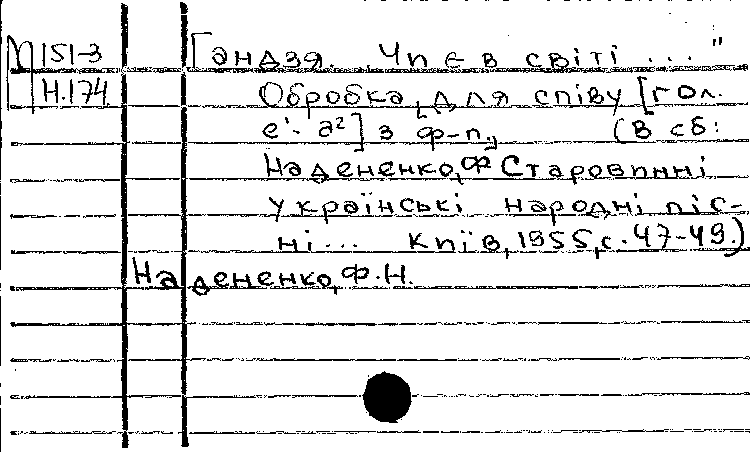 М151-3 Гандзя. „Чи є в світі ..."
Н.174 Обробка [для співу [гол.
e¹- a²] з ф-п.] (В сб:
Надененко, Ф Старовинні
українські народні піс-
ні... Київ, 1955, с. 47-49.)
Надененко, Ф.Н.